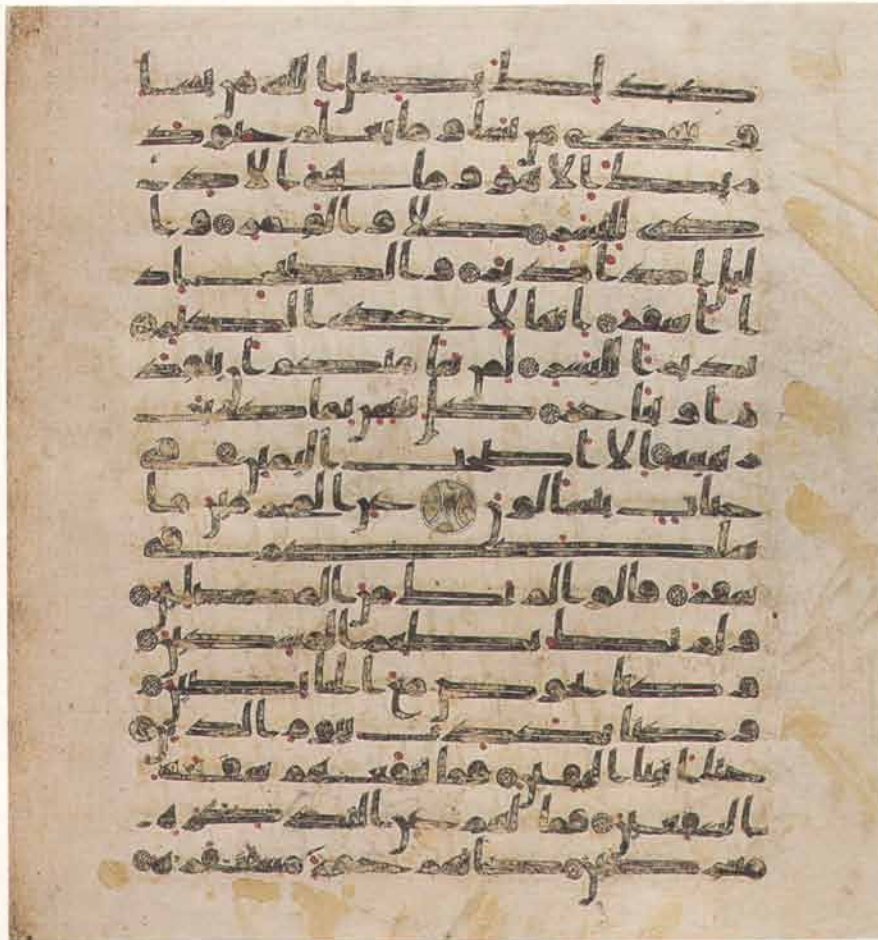 كذلك يضل الله من يشا
و يهدى من يشا وما يعلم جنود
ربك الا هو وما هى الا ذكر
ى للبشر كلا والقمر وا
ليل اذ ادبر والصبح اذ
ا اسفر انها لاحدى الكبر
نذيرا للبشر لمن شا منكم ان يتقد
م او يتاخر كل نفس بما كسبت ر
هينة الا اصحب اليمين فى
جنت يتسالون عن المجرمين ما
سلككم فى
سقر قالوا لم نك من المصلين
ولم نك نطعم المسكين
وكنا نخوض مع الخايضين
وكنا نكذب بيوم الدين
حتى اتينا اليقين فما تنفعهم شفعة
الشفعين فما لهم عن التذكرة م
عرضين كانهم حمر مستنفرة